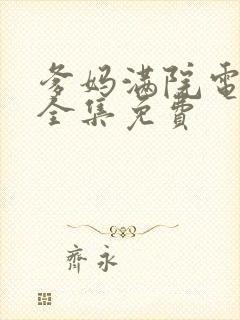 爹妈满院电
全集免费
齊永